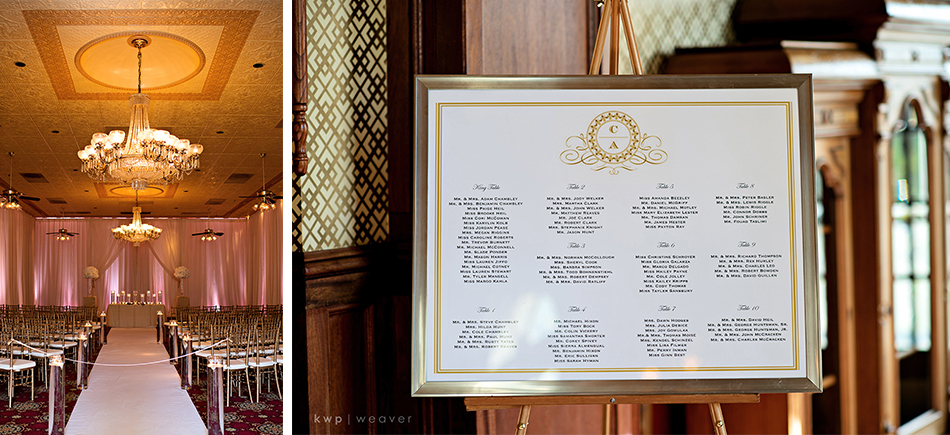 C
A
King Table
Mr. & Mrs. Adam Chambley
Mr. & Mrs. Benjamin Chambley
Miss Paige English
Miss Brooke Heil
Miss Cori McCowan
Miss Karilyn Kole
Miss Jordan Pease
Mrs. Megan Riggins
Miss Caroline Roberts
Mr. Trevor Burnett
Mr. Michael McConnell
Mr. Slade Ponder
Mr. Mason Harris
Miss Lauren
Mr. Michael Cotney
Miss Lauren Stewart
Mr. Tyler Mengel
Miss Margo Kahla
Table 1
Mr. & Mrs. Steve Chambley
Mrs. Hilda Hunt
Mr. Cole Chambley
Mr. & Mrs. Paul Hunt
Mr. & Mrs. Rusty
Mr. & Mrs. Robert
Table 2
Mr. & Mrs. Jody Welker
Mrs. Martha Clark
Mr. & Mrs. John Welker
Mr. Matthew Reaves
Mr. Joe Clark
Mr. Robert Clark
Mrs. Stephanie Knight
Mr. Jason Hunt
Table 3
Mr. & Mrs. Norman McCollough
Mrs. Sheryl Cook
Mr. & Mrs. Barbra Simpkin
Mr. & Mrs. Todd Bonnenstiehl
Mr. & Mrs. Robert Dempsey
Mr. & Mrs. David Ratliff
Table 4
Mr. Michael Hixon
Miss Tory Bock
Mr. Colin Vickery
Miss Samantha Shorter
Mr. Corey Spivey
Miss Sierra Almengual
Mr. Benjamin Hixon
Mr. Eric Sullivan
Miss Sarah Hyman
Table 5
Miss Amanda Beezley
Mr. Daniel McGriff
Mr. & Mrs. Michael Motley
Miss Mary Elizabeth Lester
Mr. Thomas Damman
Mr. James Hester
Miss Payton Ray
Table 6
Miss Christine Schroyer
Miss Gloria Galarza
Mr. Marco Delgado
Miss Hailey Payne
Mr. Cole Jolley
Miss Kailey Kripps
Mr. Cody Thomas
Miss Taylor Sansbury
Table 7
Mrs. Dawn Hodges
Mrs. Julia Derick
Mr. Jeff Gowulak
Mr. & Mrs. Thomas Mouat
Mr. Kendel Schinzel
Miss Lisa Filmar
Mr. Perry Inman
Miss Ginn Bert
Table 8
Mr. & Mrs. Peter Basler
Mr. & Mrs. Lewis Riddle
Miss Robin Might
Mr. Connor Dobbs
Mr. John Schriner
Mr. Fouad Taslimi
Table 9
Mr. & Mrs. Richard Thompson
Mr. & Mrs. Rex Hurley
Mr. & Mrs. Charles Leo
Mr. & Mrs. Robert Bowden
Mr. & Mrs. David Guillen
Table 10
Mr. & Mrs. David Heil
Mr. & Mrs. George Huntsman, Sr.
Mr. & Mrs. George Huntsman, Jr.
Mr. & Mrs. McCracken
Mr. & Mrs. Charles McCracken
kwp | weaver